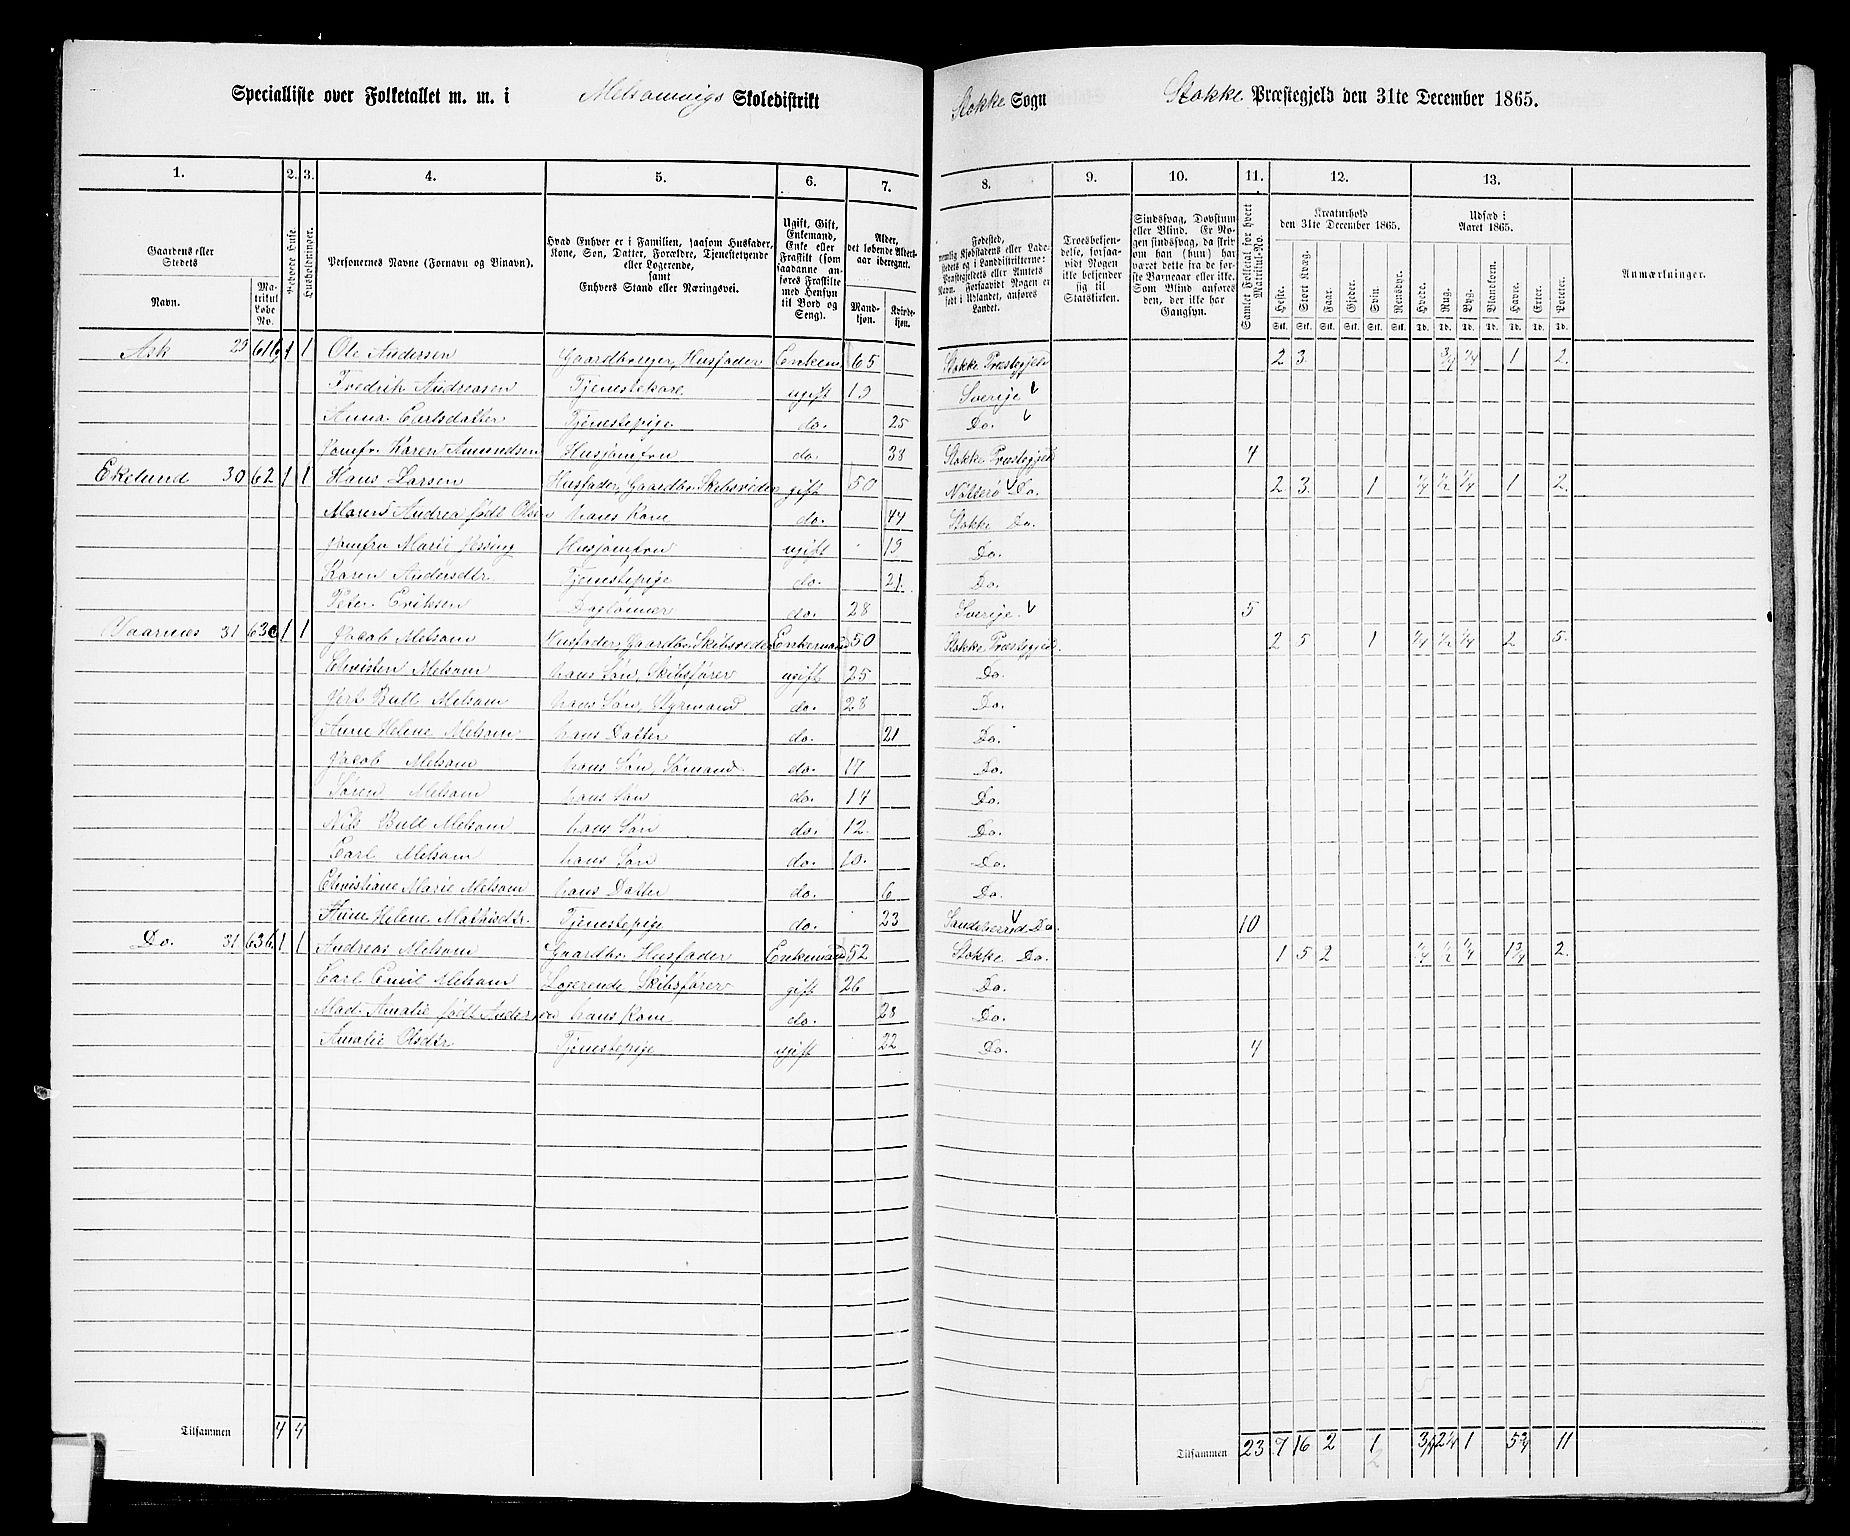 Specialliste over Folketallet m. m. i Melsomvigs Skoledistrikt Stokke Sogn Stokke Præstegjeld den 31te December 1865.
1. 2. 3. 4. 5. 6. 7. 8. 9. 10. 11. 12. 13.
Gaardens eller Stedets
Navn.
Matrikul Løbe No.
Beboede Huse.
Husholdninger.
Personernes Navne (Fornavn og Tilnavn).
Hvad Enhver er i Familien, saasom Husfader, Kone, Søn, Datter, Forældre, Tjenestetyende eller Logerende,
samt
Enhvers Stand eller Næringsvei.
Ugift, Gift, Enkemand, Enke eller Fraskilt (som saadanne anføres Fraskilte med Hensyn til Bord og Seng).
Alder, det løbende Alders-aar iberegnet.
Mandkjøn. Kvindekjøn.
Fødested, nemlig Kjøbstadens eller Ladestedets og i Landdistrikterne: Præstegjeldets eller Amtets Navn. Forsaavidt Nogen er født i Udlandet, anføres Landet.
Troesbekjendelse, forsaavidt Nogen ikke bekjender sig til Statskirken.
Sindssvag, Døvstum eller Blind. Er Nogen sindssvag, da skriv om han (hun) har været dette fra de første Barneaar eller ikke. Som Blind anføres den, der ikke har Gangsyn.
Samlet Folketal for hvert Matrikul-No.
Kreaturhold den 31te December 1865.
Heste. Stort Kvæg. Faar. Gjeder. Svin. Rensdyr.
Udsæd i Aaret 1865.
Hvede. Rug. Byg. Blandkorn. Havre. Erter. Poteter.
Anmærkninger.
Stk. Stk. Stk. Stk. Stk. Stk. Td. Td. Td. Td. Td. Td. Td.
Ask 29 61b 1 1 Ole Andersen Gaardbruger, Husfader Enkem 65 Stokke Præstegjeld 2 3 3/4 1/4 1 2.
Fredrik Andreasen Tjenestekarl ugift 19 Sverije
Anna Carlsdatter Tjenestepige do. 25 Do.
Jomfr. Karen Amundsen Husjomfru do. 38 Stokke Præstegjeld 4
Ekelund 30 62 1 1 Hans Larsen Husfader, Gaardbr. Skibsreder gift 50 Nøtterø Do. 2 3. 1 1/4 1/2 1/4 1 2.
Maren Andrea født Olsen hans Kone do. 44 Stokke Do.
Jomfru Marie Jessing Husjomfru ugift 19 Do.
Karen Andersdtr. Tjenestepige do. 21. Do.
Peter Eriksen Daglønner do. 28 Sverije. 5
31 63 1 1 Jacob Melsom Husfader, Gaardbr. Skibsreder Enkemand 50 Stokke Præstegjeld. 2 5 1 1/4 1/2 1/4 2 5.
Christen Melsom hans Søn, Skibsfører ugift 25 Do.
Gert Bull Melsom hans Søn, Styrmand do. 28 Do.
Anne Helene Melsom hans Datter do. 21 Do.
Jacob Melsom hans Søn, Sømand do. 17 Do.
Søren Melsom hans Søn do. 14 Do.
Nils Bull Melsom hans Søn do. 12. Do.
Carl Melsom hans Søn do. 10. Do.
Christiane Marie Melsom hans Datter do. 6 Do.
Anne Helene Mathisdtr. Tjenestepige do. 23 Sandeherred Do. 10
Do. 31 63b 1 1 Andreas Melsom Gaardbr. Husfader Enkemand 52 Stokke Do. 1 5 2 1/4 1/2 1/4 1 3/4 2.
Carl Emil Melsom Logerende Skibsfører gift 26 Do.
Mad. Amalie født Andersen hans Kone do. 28 Do.
Amalie Olsdtr Tjenestepige ugift 22 Do. 4
Tilsammen 4 4 Tilsammen 23 7 16 2 1 2 3/4 2 1/4 1 5 3/4 11